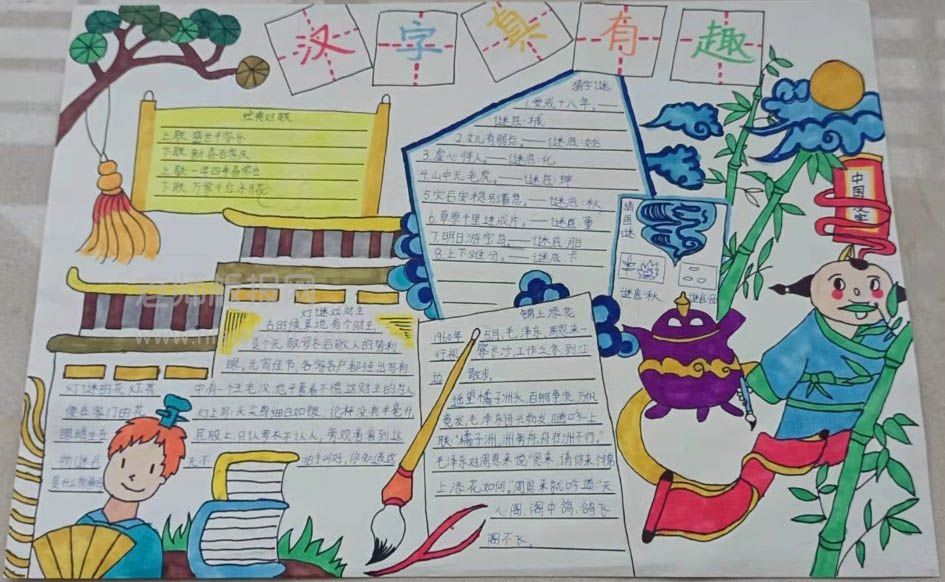 汉字真有趣
经典对联
上联 盛世千家乐
下联 新春百家庆
上联 一年四季春常在
下联 万紫千红永开花
猜字谜
1.要戒十八年,——
谜底:械
2.文化有弱点,——谜底:
3.虚心待人,——谜底:化
4.山中无老虎,——谜底:
5.灾后安 想别清愁,——谜底:秋
6.草原千里连成片,——谜底:董
7.明日游宝岛,——谜底:胎
8.上下难分,——谜底:卡
猜画谜
谜底:秋
谜底:品
中国汉字
灯谜戏财主
古时候某地,有个财主,
是个先敬罗衣后敬人的势利
眼,元宵佳节,各家各户都挂出写有
灯谜的花灯,其
中有一个王老汉,他平素看不惯这财主的为人
便在家门的花
灯上写:头尖身细白如银,论秤没有半毫分,
眼睛生在
屁股上,只认罗衣不认人,旁观者看到这
物谜
无不
拍手叫好,你知道这
是什么物品吗
锦上添花
1960年
5月,毛泽东、周恩来一
行视
察长沙,工作之余,到江
边
散步,
他望橘子洲头,百舸争流,万帆
竞发,毛泽东诗兴勃发,随吟一上
联:“橘子洲,洲旁舟,舟行洲不行。”
毛泽东对周恩来说:“恩来,请你来个锦
上添花如何,”周恩来脱吟道“天
心阁,阁中鸽,鸽飞
阁不飞。
老师板报网